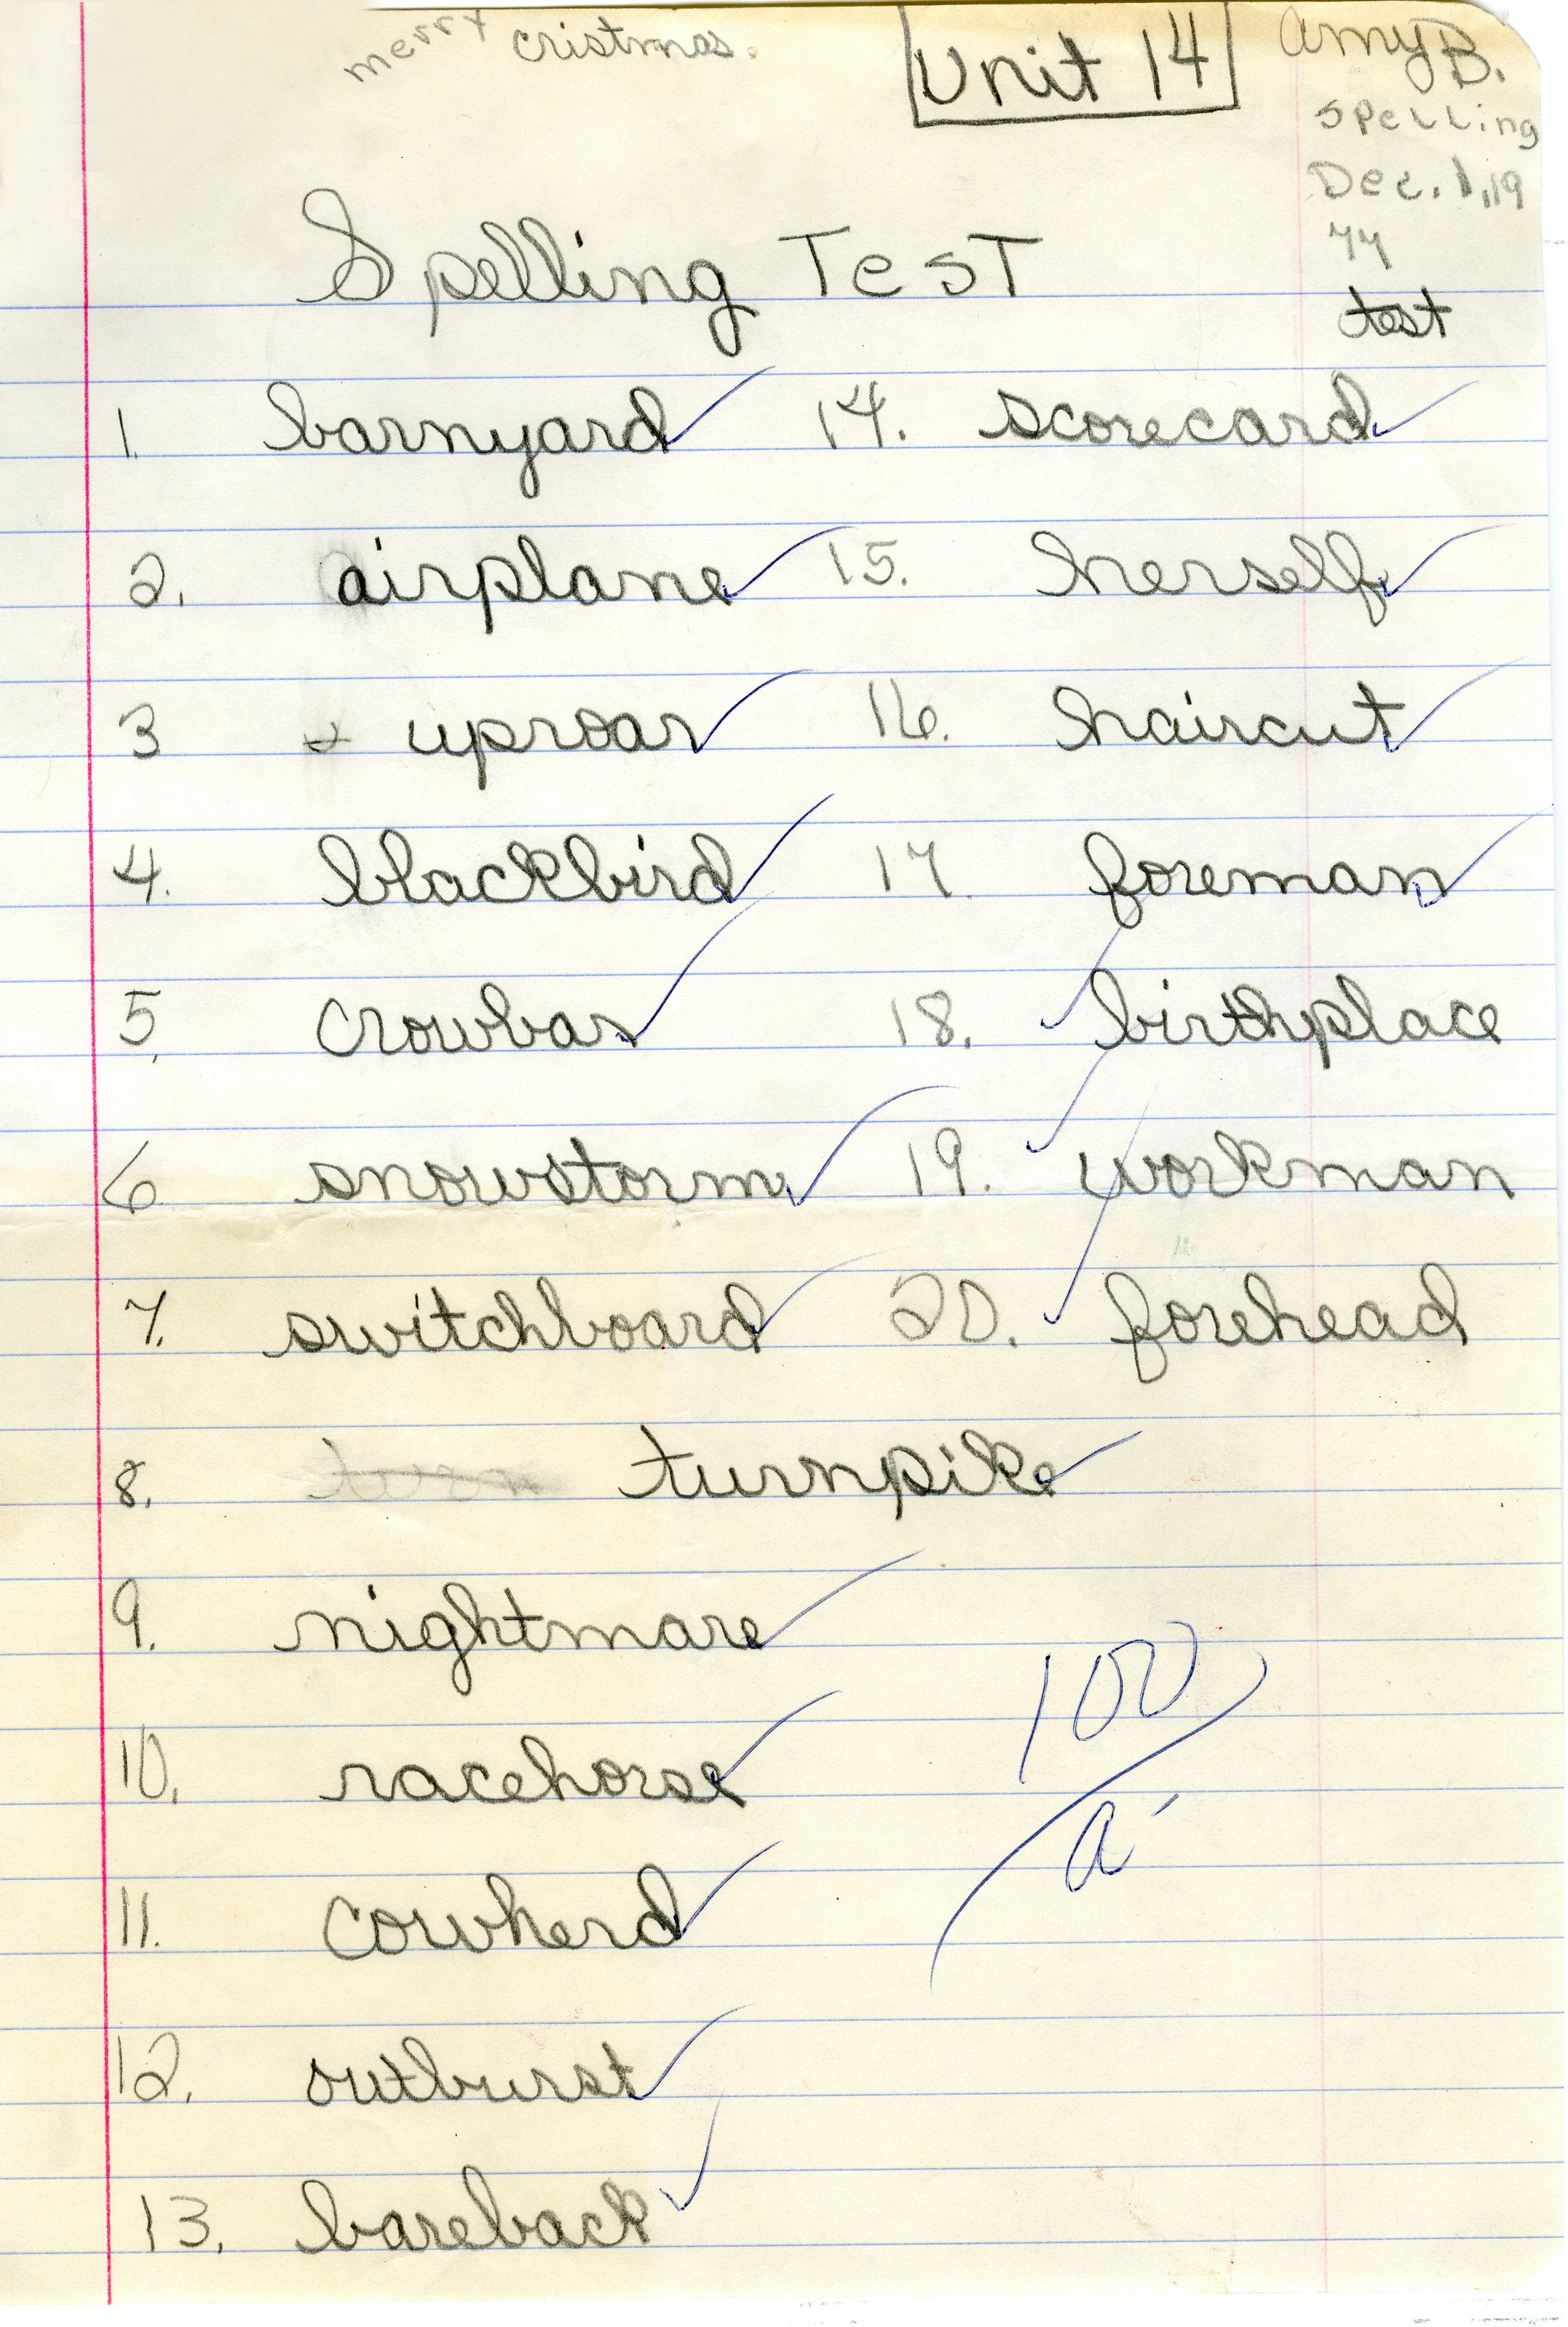 merry cristmas.
Unit 14
Amy B.
Spelling
Dec. 1, 19
77
test
Spelling Test
1. barnyard
2. airplane
3 uproar
4. blackbird
5. crowbar
6 snowstorm
7. switchboard
8. turn turnpike
9. nightmare
10. racehorse
11. cowherd
12. outburst
13. bareback
14. scorecard
15. herself
16. haircut
17. foreman
18. birthplace
19. workman
20. forehead
100
a